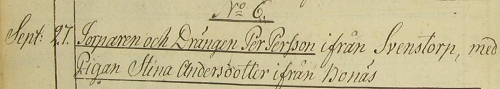 No 6.
Sept: 27. Sornaren och Drängen Per Persson ifrån Svenstorp, med
Pigan Stina Andersdotter ifrån Bonäs